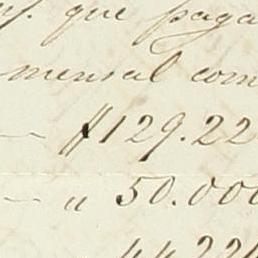 que paga
mensal com
— $129.22
— a 50.000